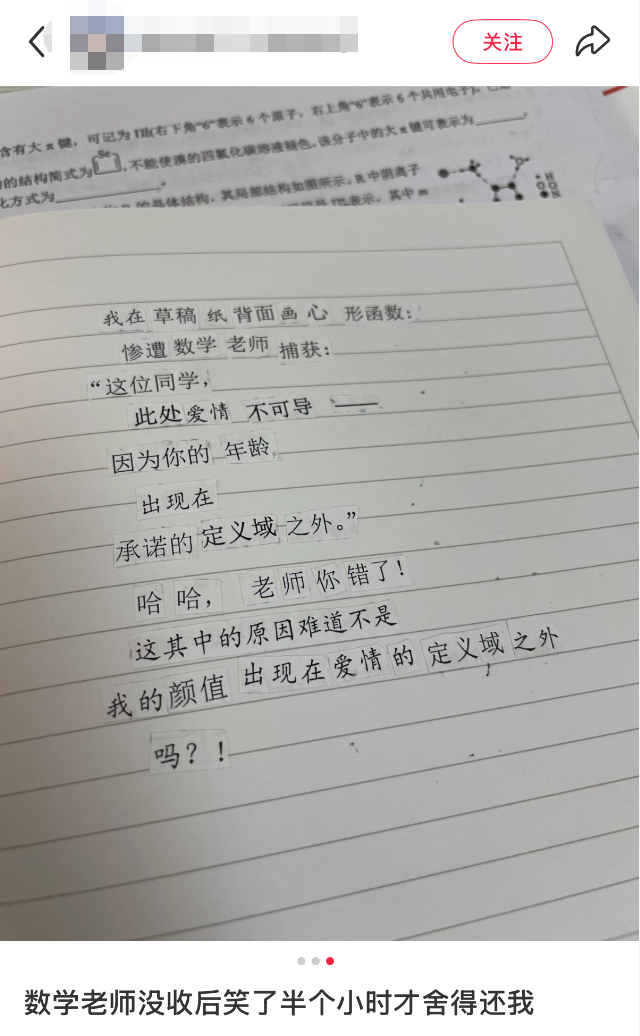 关注
含有大π键，可记为Π(右下角“6”表示6个原子，右上角“6”表示6个共用电子)。
的结构简式为 Se ，不能使溴的四氯化碳溶液褪色。该分子中的大π键可表示为
化方式为
的晶体结构，其局部结构如图所示。R中阴离子
表示，其中m
H
O
N
我在草稿纸背面画心形函数：
惨遭数学老师捕获：
“这位同学，
此处爱情不可导——
因为你的年龄
出现在
承诺的定义域之外。”
哈哈，老师你错了！
这其中的原因难道不是
我的颜值出现在爱情的定义域之外
，
吗？！
数学老师没收后笑了半个小时才舍得还我